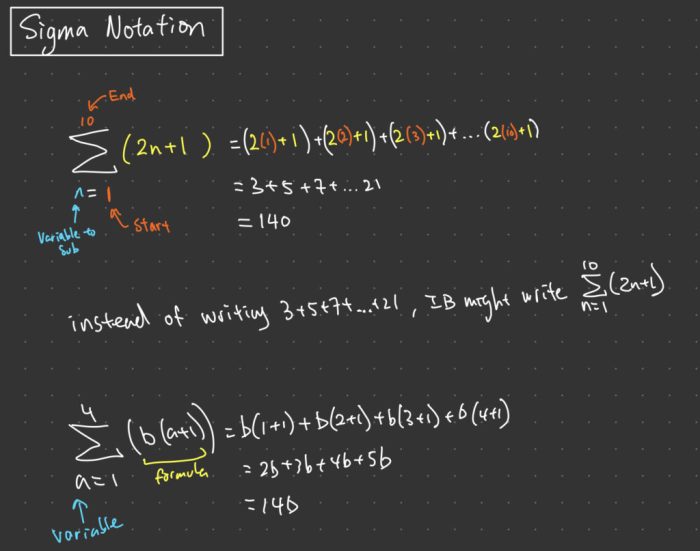 Sigma Notation
End
10
∑ (2n+1) = (2(1)+1)+(2(2)+1)+(2(3)+1)+...(2(10)+1)
n = 1
= 3+5+7+...21
Variable to Sub
Start
= 140
instead of writing 3+5+7+...+21, IB might write ∑ (2n+1)
10
n=1
4
∑ (b(a+1)) = b(1+1)+b(2+1)+b(3+1)+b(4+1)
a=1
formula
= 2b+3b+4b+5b
= 14b
Variable